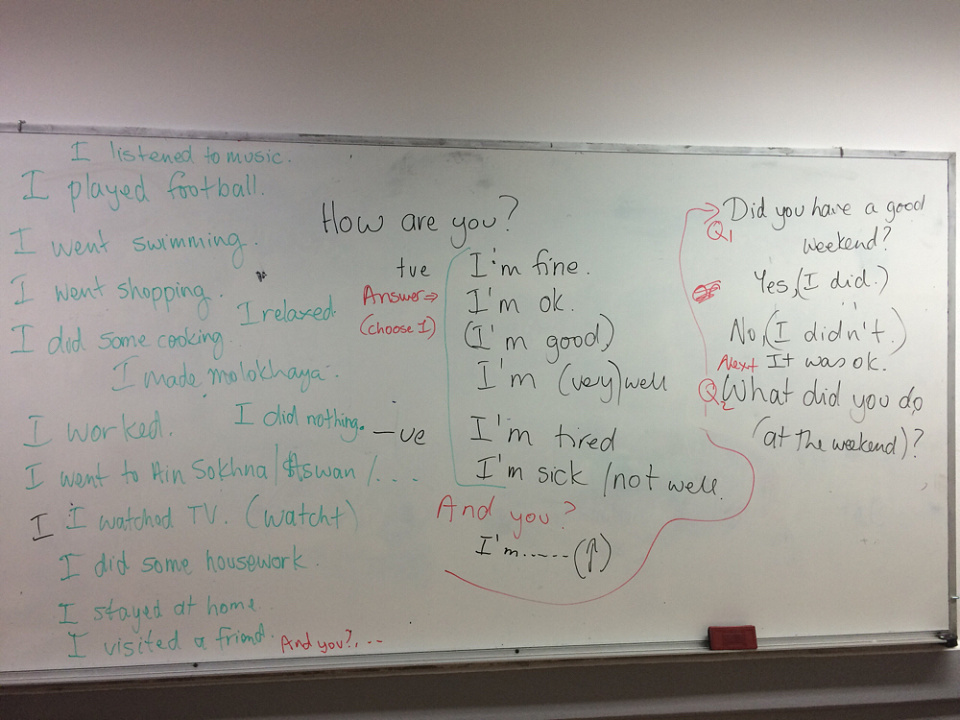 I listened to music.
I played football.
I went swimming.
I went shopping.
I relaxed.
I did some cooking.
I made molokhaya.
I did nothing.
I worked.
I went to Ain Sokhna/Aswan/...
I I watched TV. (watcht)
I did some housework.
I stayed at home.
I visited a friend. And you?, ...
How are you?
+ve I'm fine.
Answer⇒ I'm ok.
(choose 1) (I'm good)
I'm (very) well
-ve I'm tired
I'm sick / not well.
And you?
I'm...... (↑)
Did you have a good
Q1 weekend?
Yes, (I did.)
No, (I didn't.)
Next It was ok.
Q2 What did you do
(at the weekend)?